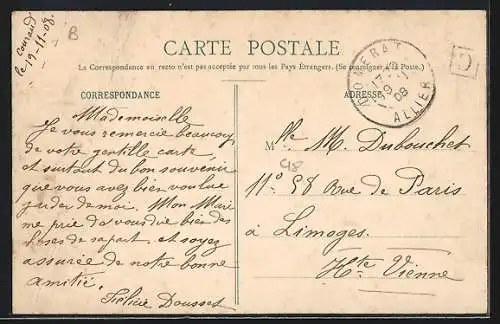 le courand
le 19-11-08.
B
CARTE POSTALE
La Correspondance au recto n'est pas acceptée par tous les Pays Étrangers. (Se renseigner à la Poste.)
CORRESPONDANCE
ADRESSE
DOMERAT
17
19 - 11
08
ALLIER
C
Mademoiselle
Je vous remercie beaucoup
de votre gentille carte,
et surtout du bon souvenir
que vous avez bien voulue
garder de moi. Mon Mari
me prie de vous dire bien des
choses de sa part. et soyez
assurée de notre bonne
amitié.
Felicie Dousset
Mlle M. Dubouchet
48
11° 58 Rue de Paris
à Limoges.
Hte Vienne